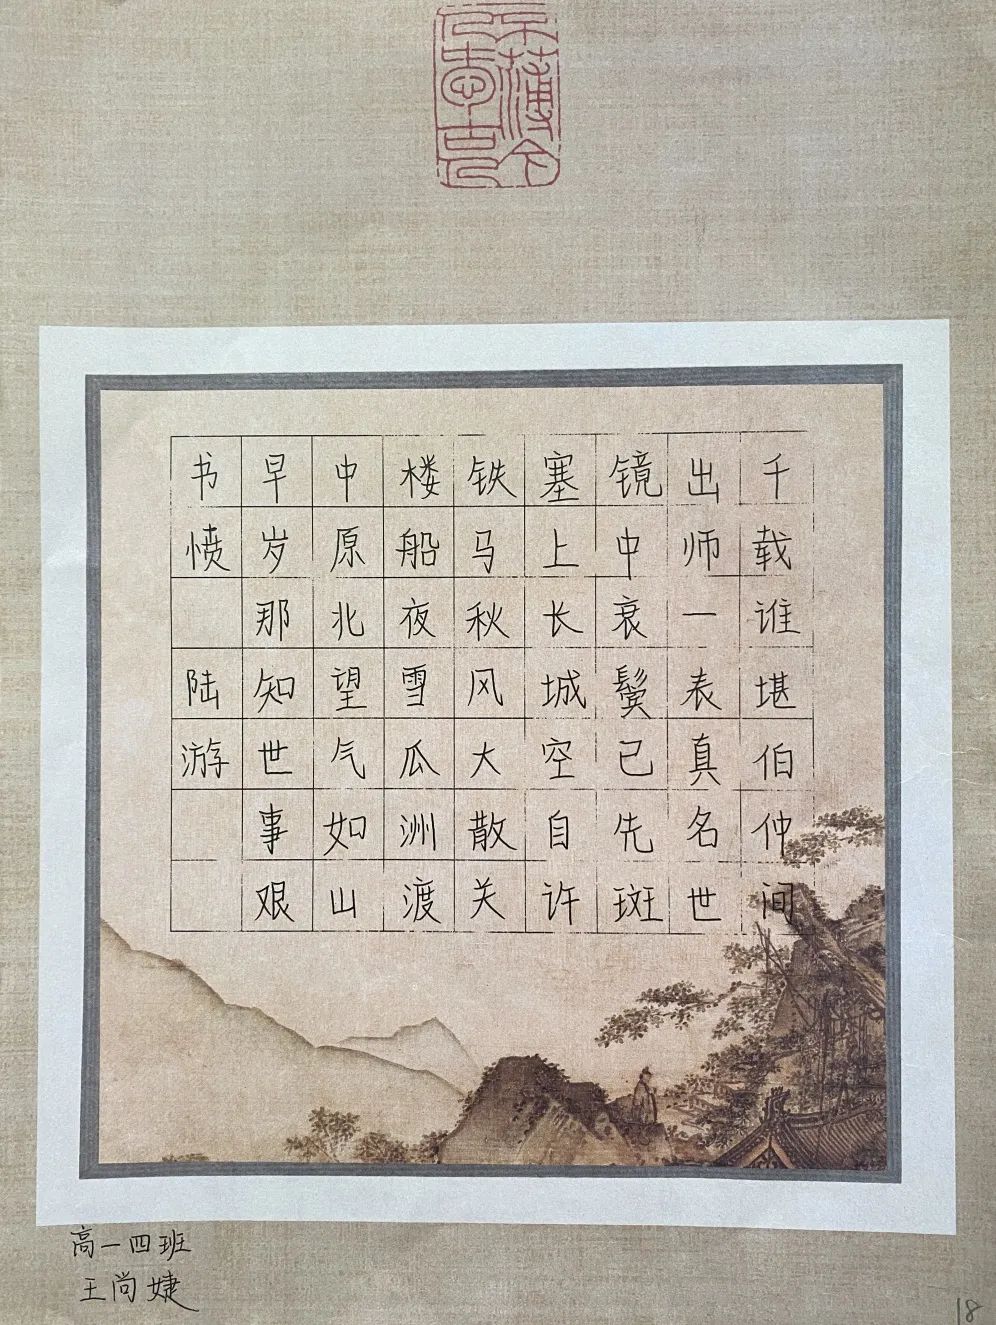 不薄今
人爱古人
书愤 陆游
早岁那知世事艰
中原北望气如山
楼船夜雪瓜洲渡
铁马秋风大散关
塞上长城空自许
镜中衰鬓已先斑
出师一表真名世
千载谁堪伯仲间
高一四班
王尚婕
18